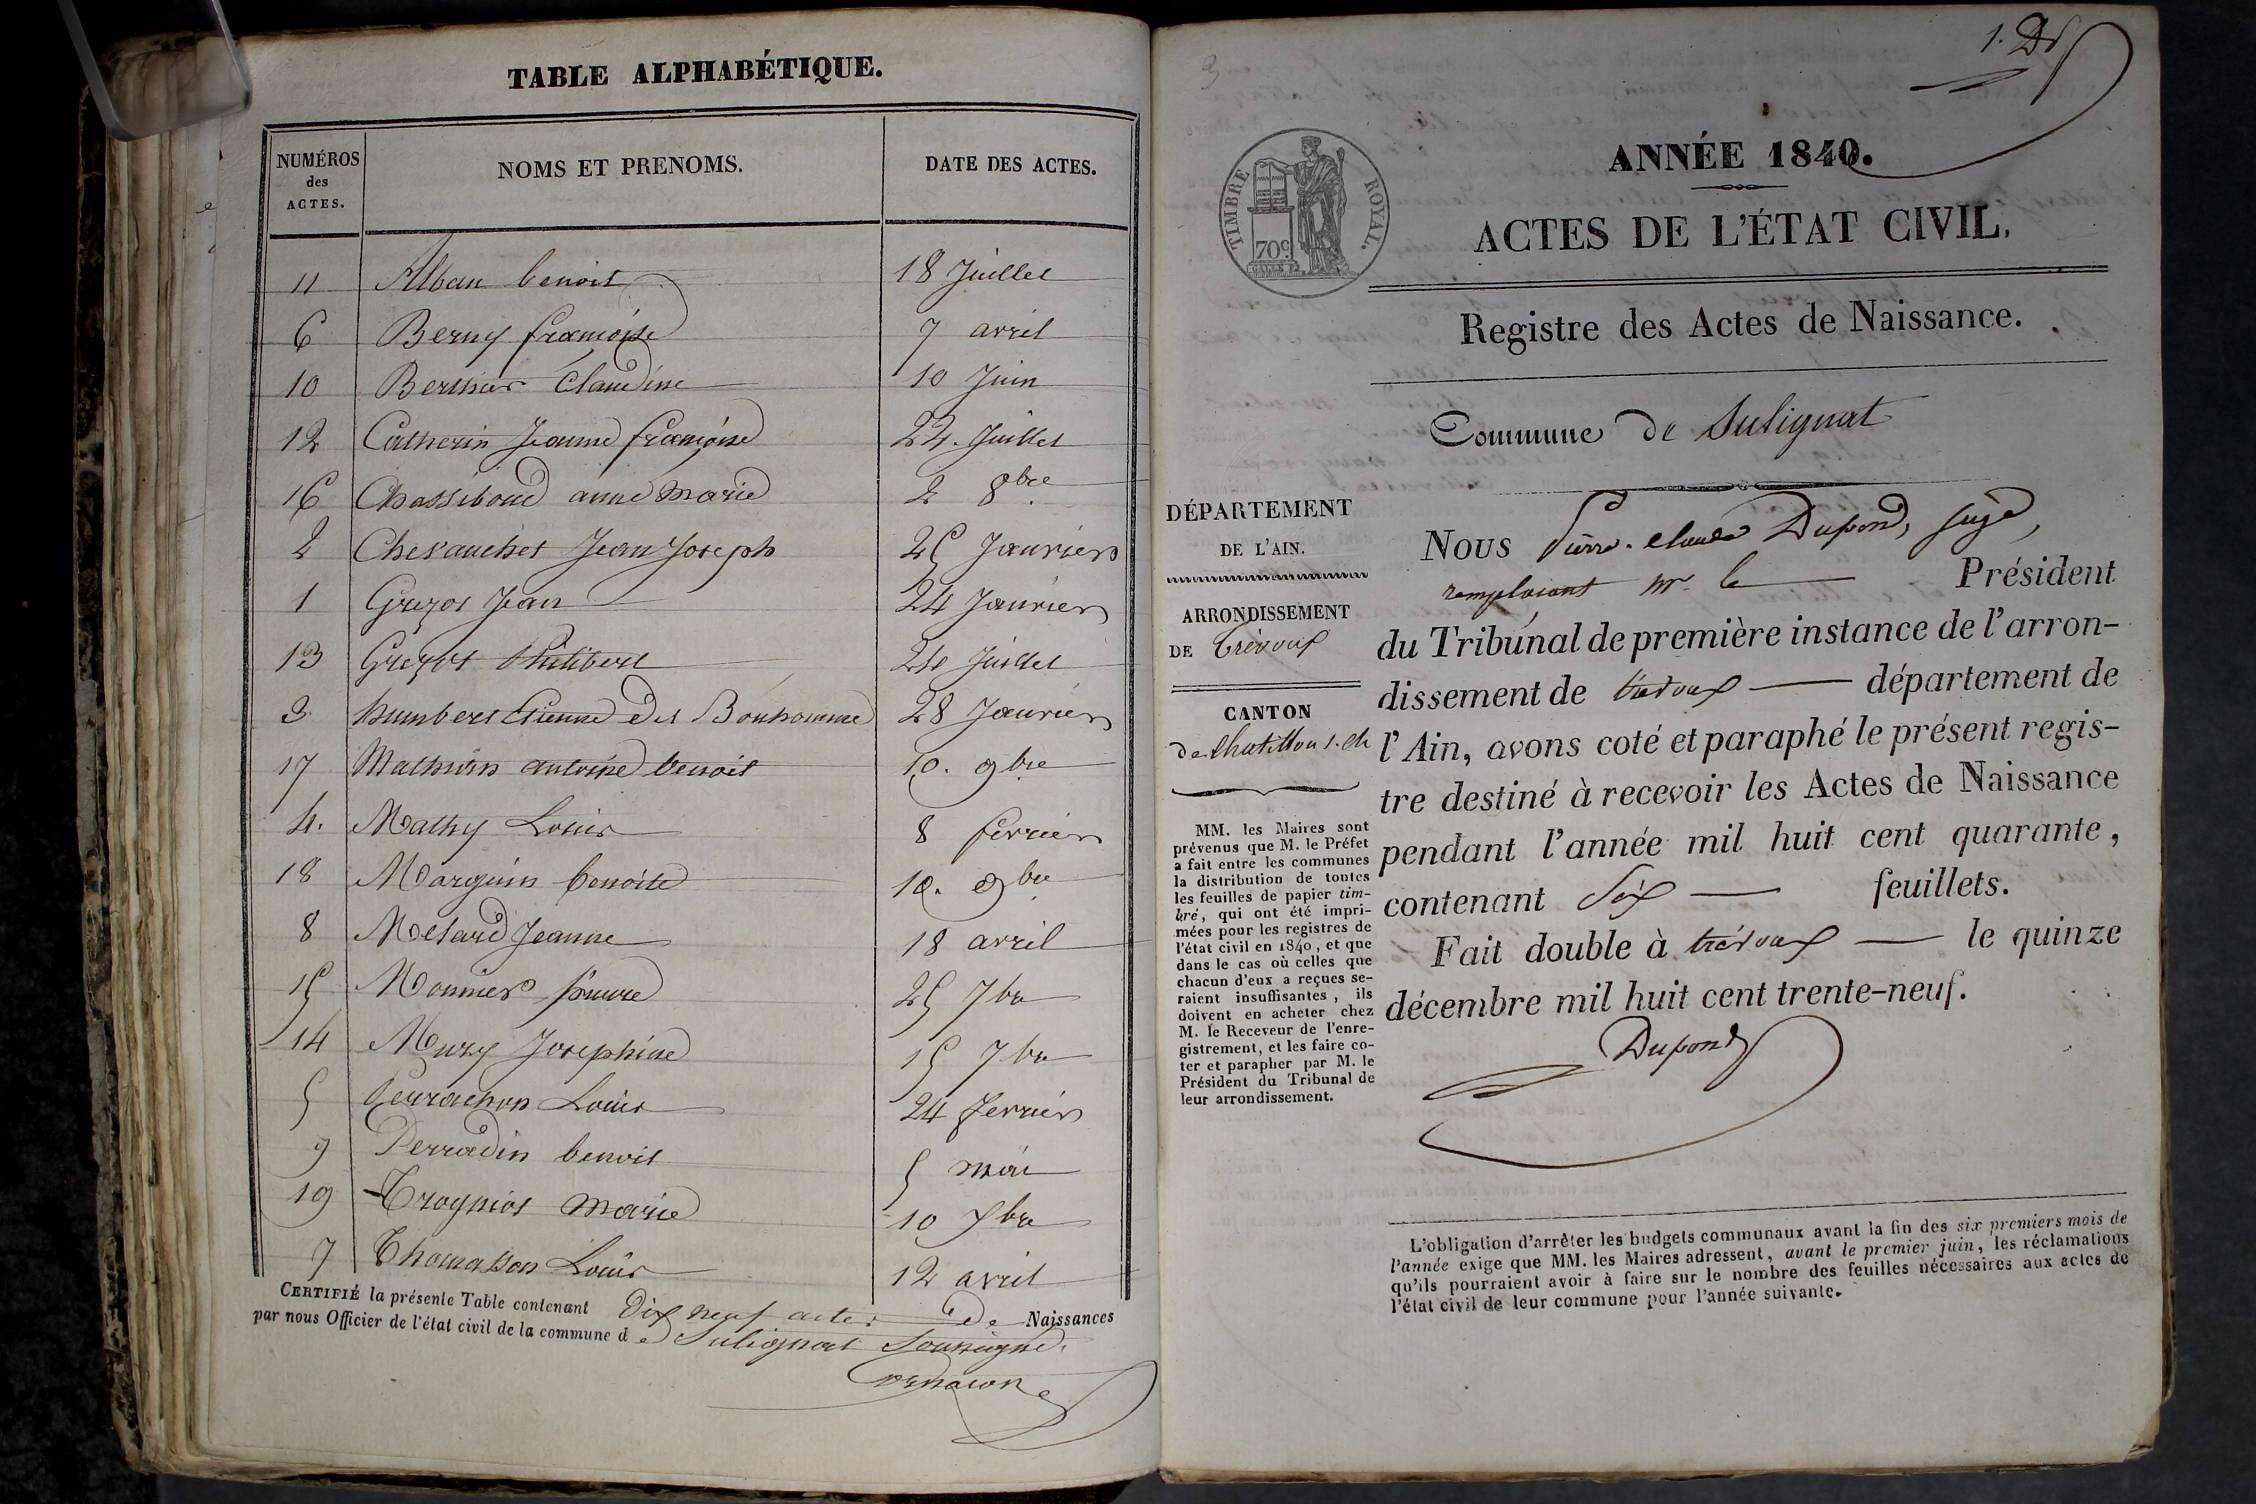 TABLE ALPHABÉTIQUE.
NUMÉROS des ACTES. NOMS ET PRENOMS. DATE DES ACTES.
11 Alban benoit 18 Juillet
6 Berny françoise 7 avril
10 Berthier Claudine 10 Juin
12 Catherin Jeanne françoise 22. Juillet
16 Chassiboud anne Marie 2 8bre
2 Chevauchet Jean Joseph 25 Janvier
1 Grezot Jean 24 Janvier
13 Grezot Philibert 24 Juillet
3 humbert Etienne dit Bonhomme 28 Janvier
17 Mathian antoine benoit 10. 9bre
4. Mathy Louis 8 fevrier
18 Marguin benoite 10. 9bre
8 Metard Jeanne 18 avril
15 Monnier pierre 25 7bre
14 Mury Josephine 15 7bre
5 Perrachon Louis 24 fevrier
9 Perradin benoit 5 mai
19 marie 10
7 Thomasson Louis 12 avril
CERTIFIÉ la présente Table contenant Dix neuf actes de Naissances
par nous Officier de l'état civil de la commune de Sulignat Soussigné.
1.
ANNÉE 1840.
TIMBRE ROYAL.
70c
ACTES DE L'ÉTAT CIVIL.
Registre des Actes de Naissance.
Commune de Sulignat
DÉPARTEMENT
DE L'AIN.
ARRONDISSEMENT
DE Trévoux
CANTON
de Chatillon s. Ch
MM. les Maires sont
prévenus que M. le Préfet
a fait entre les communes
la distribution de toutes
les feuilles de papier tim-
bré, qui ont été impri-
mées pour les registres de
l'état civil en 1840, et que
dans le cas où celles que
chacun d'eux a reçues se-
raient insuffisantes, ils
doivent en acheter chez
M. le Receveur de l'enre-
gistrement, et les faire co-
ter et parapher par M. le
Président du Tribunal de
leur arrondissement.
Nous Pierre-Claude Dupond, juge,
remplaçant Mr. le Président
du Tribunal de première instance de l'arron-
dissement de trévoux département de
l'Ain, avons coté et paraphé le présent regis-
tre destiné à recevoir les Actes de Naissance
pendant l'année mil huit cent quarante,
contenant Six feuillets.
Fait double à trévoux le quinze
décembre mil huit cent trente-neuf.
Dupond
L'obligation d'arrêter les budgets communaux avant la fin des six premiers mois de
l'année exige que MM. les Maires adressent, avant le premier juin, les réclamations
qu'ils pourraient avoir à faire sur le nombre des feuilles nécessaires aux actes de
l'état civil de leur commune pour l'année suivante.